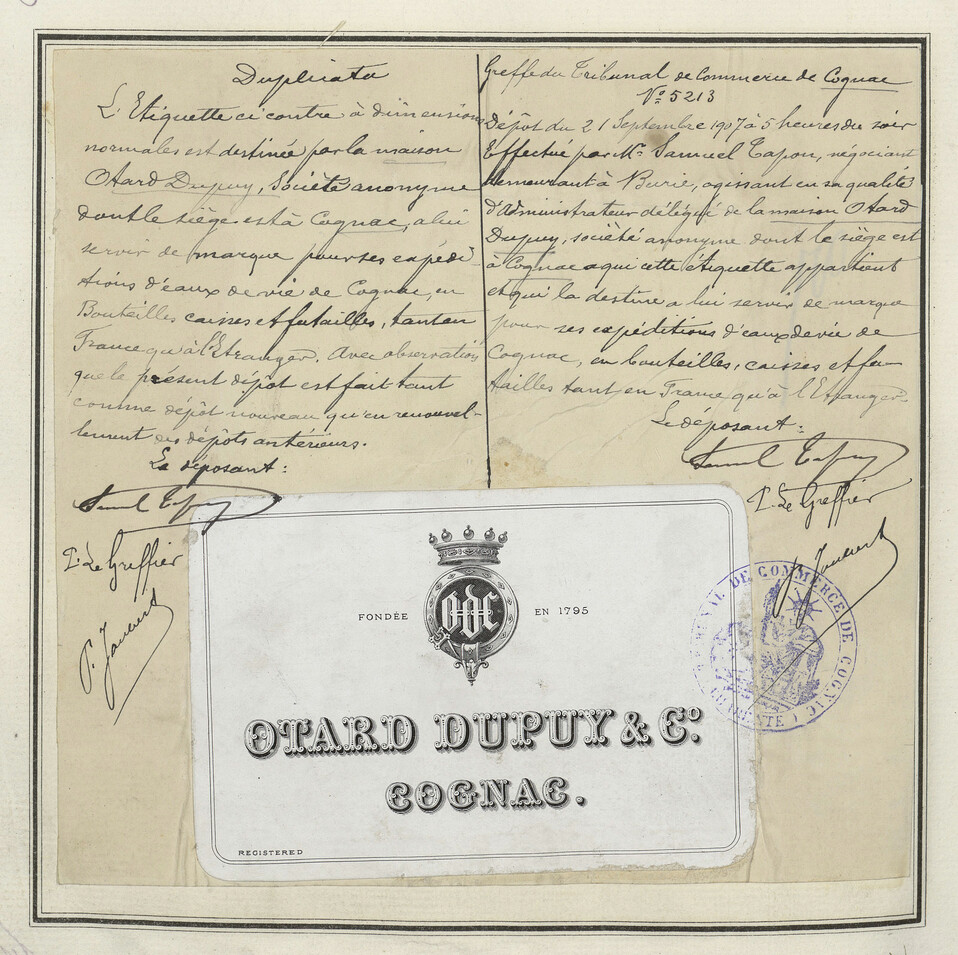 Duplicata
L'Etiquette ci contre à dimensions
normales est destinée par la maison
Otard Dupuy, Société anonyme
dont le siège est à Cognac, a lui
servir de marque pour ses expédi-
tions d'eaux de vie de Cognac, en
Bouteilles caisses et futailles, tant en
France qu'à l'Etranger. Avec observation
que le présent dépôt est fait tant
comme dépôt nouveau qu'en renouvel-
lement des dépôts antérieurs.
Le déposant:
P. Le Greffier
Greffe du Tribunal de Commerce de Cognac
No 5213
Dépôt du 21 Septembre 1907 à 5 heures du soir
Effectué par Mr. Samuel Tapon, négociant
demeurant à Burie, agissant en sa qualité
d'Administrateur délégué de la maison Otard
Dupuy, société anonyme dont le siège est
à Cognac a qui cette étiquette appartient
et qui la destine a lui servir de marque
pour ses expéditions d'eaux de vie de
Cognac, en bouteilles, caisses et fu-
tailles tant en France qu'à l'Etranger.
Le déposant:
P. Le Greffier
TRIBUNAL DE COMMERCE DE COGNAC
(CHARENTE)
FONDÉE EN 1795
ODC
OTARD DUPUY & Co.
COGNAC.
REGISTERED